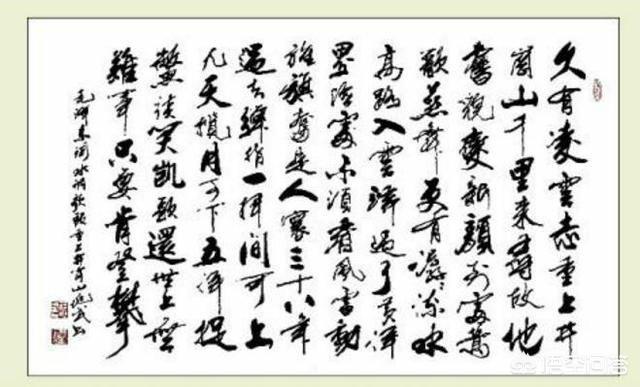 久有凌雲志重上井
崗山千里来尋故地
舊貌變新顔到處鶯
歌燕舞更有潺潺流水
高路入雲端過了黄洋
界險處不須看風雷動
旌旗奮是人寰三十八年
過去彈指一揮間可上
九天攬月可下五洋捉
鱉談笑凱歌還世上無
難事只要肯登攀
毛澤東詞水調歌頭重上井岡山
悟空问答